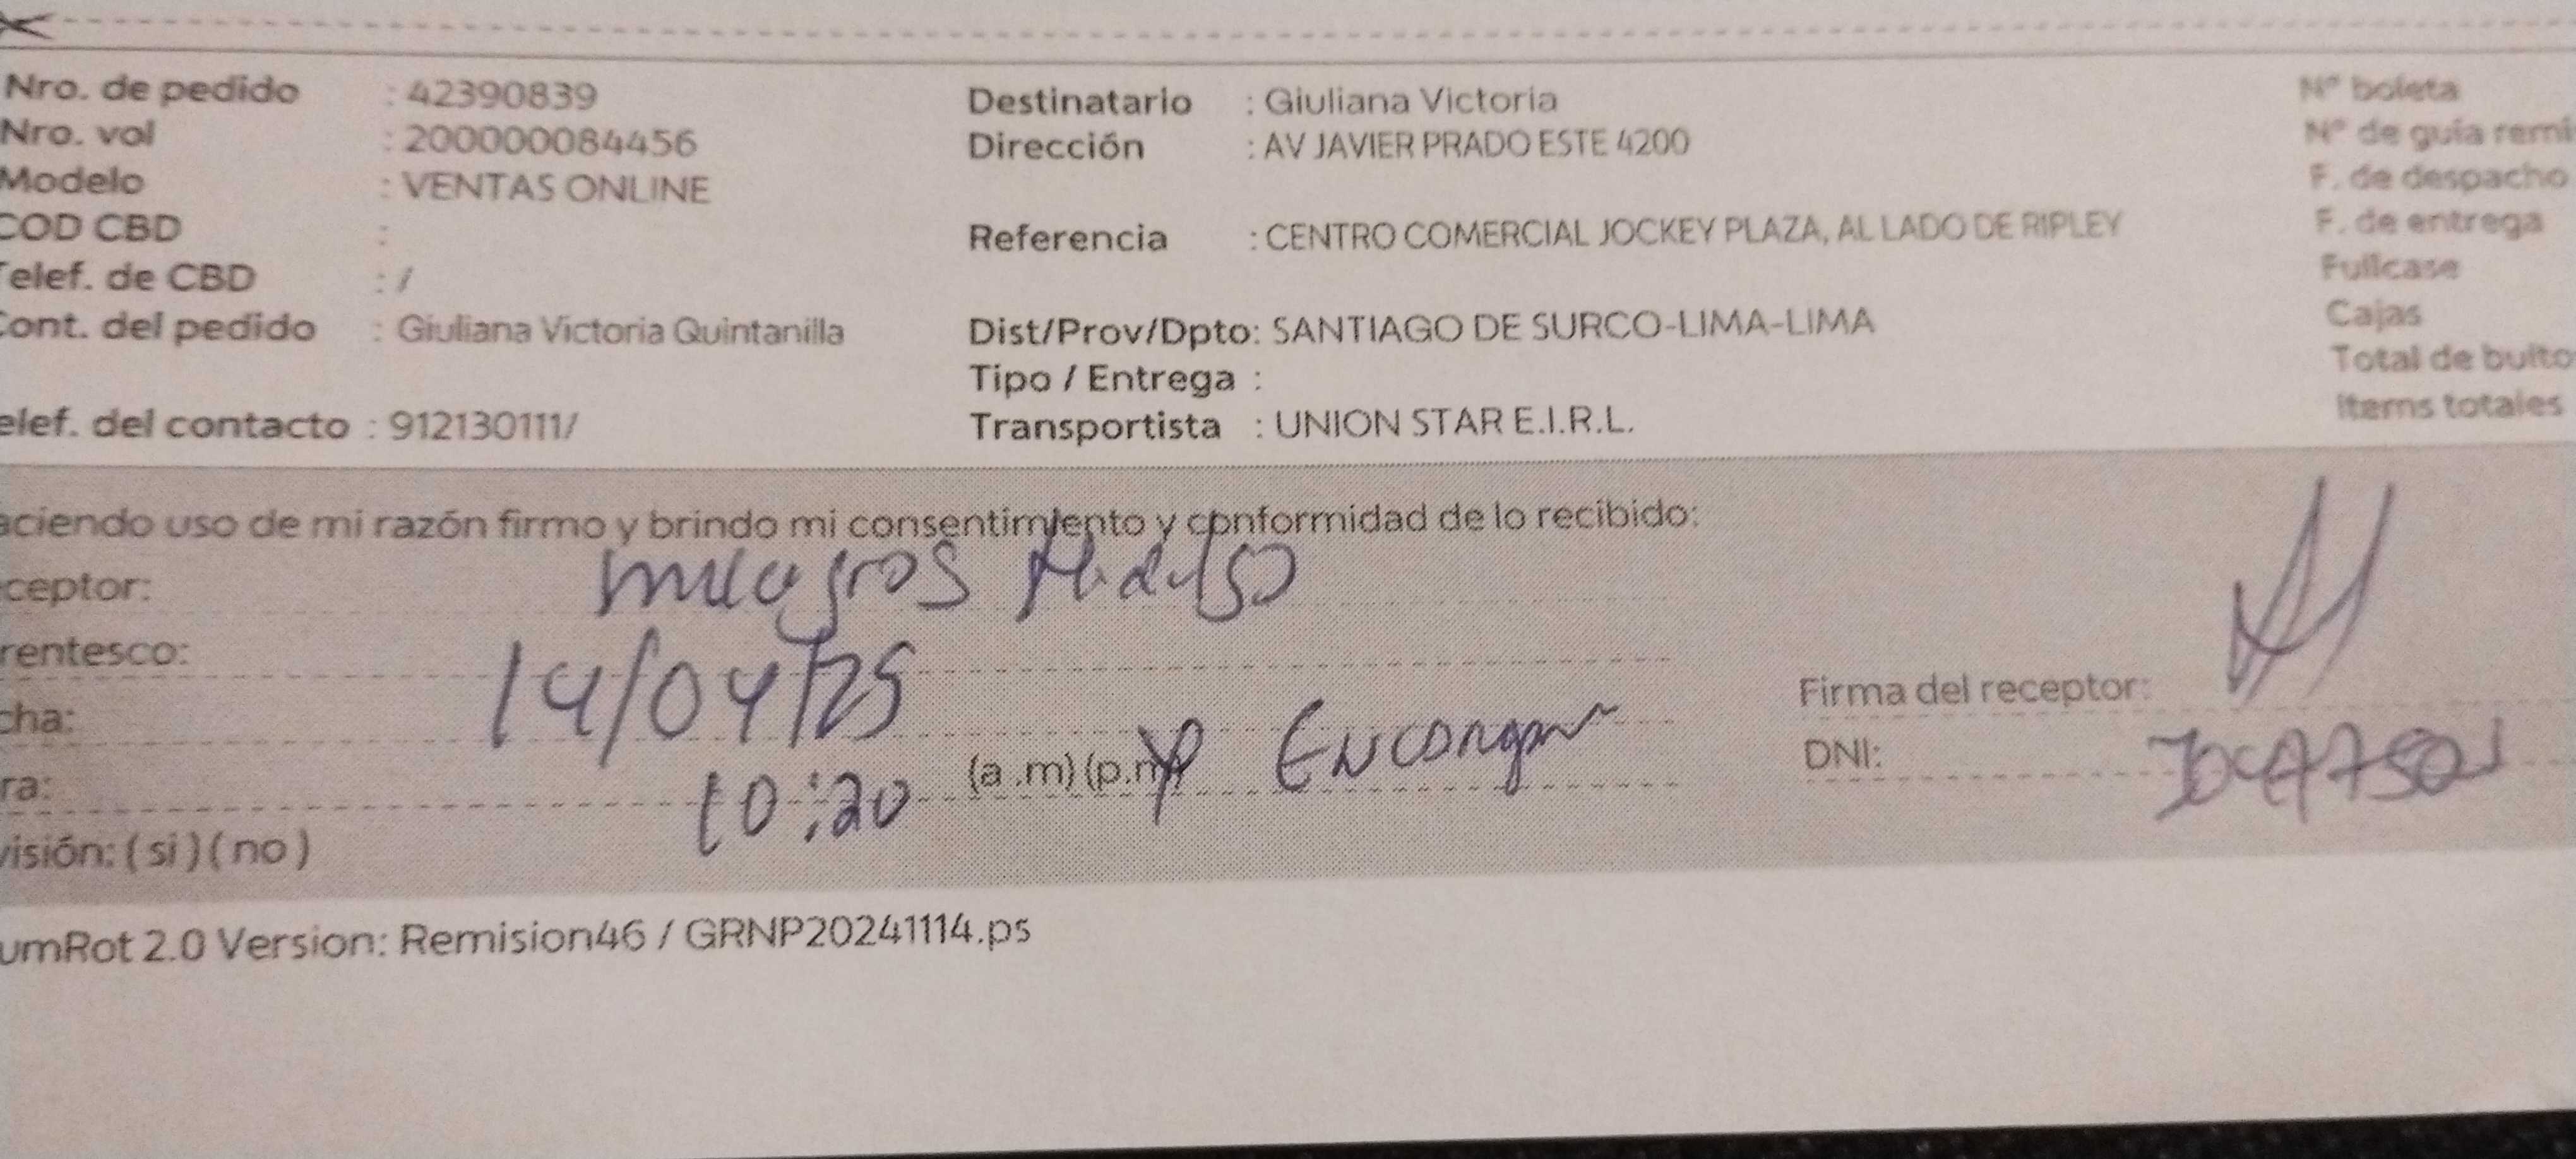 Nro. de pedido : 42390839
Nro. vol : 200000084456
Modelo : VENTAS ONLINE
COD CBD :
Telef. de CBD : /
Cont. del pedido : Giuliana Victoria Quintanilla
elef. del contacto : 912130111/
Destinatario : Giuliana Victoria
Dirección : AV JAVIER PRADO ESTE 4200
Referencia : CENTRO COMERCIAL JOCKEY PLAZA, AL LADO DE RIPLEY
Dist/Prov/Dpto: SANTIAGO DE SURCO-LIMA-LIMA
Tipo / Entrega :
Transportista : UNION STAR E.I.R.L.
N° boleta
N° de guia remi
F. de despacho
F. de entrega
Fullcase
Cajas
Total de bulto
Items totales
aciendo uso de mi razón firmo y brindo mi consentimiento y conformidad de lo recibido:
ceptor: Milagros Hidalgo
rentesco:
cha: 14/04/25
ra: 10:20 (a .m) (p.m)
visión: ( si ) ( no )
Firma del receptor:
DNI:
umRot 2.0 Version: Remision46 / GRNP20241114.ps